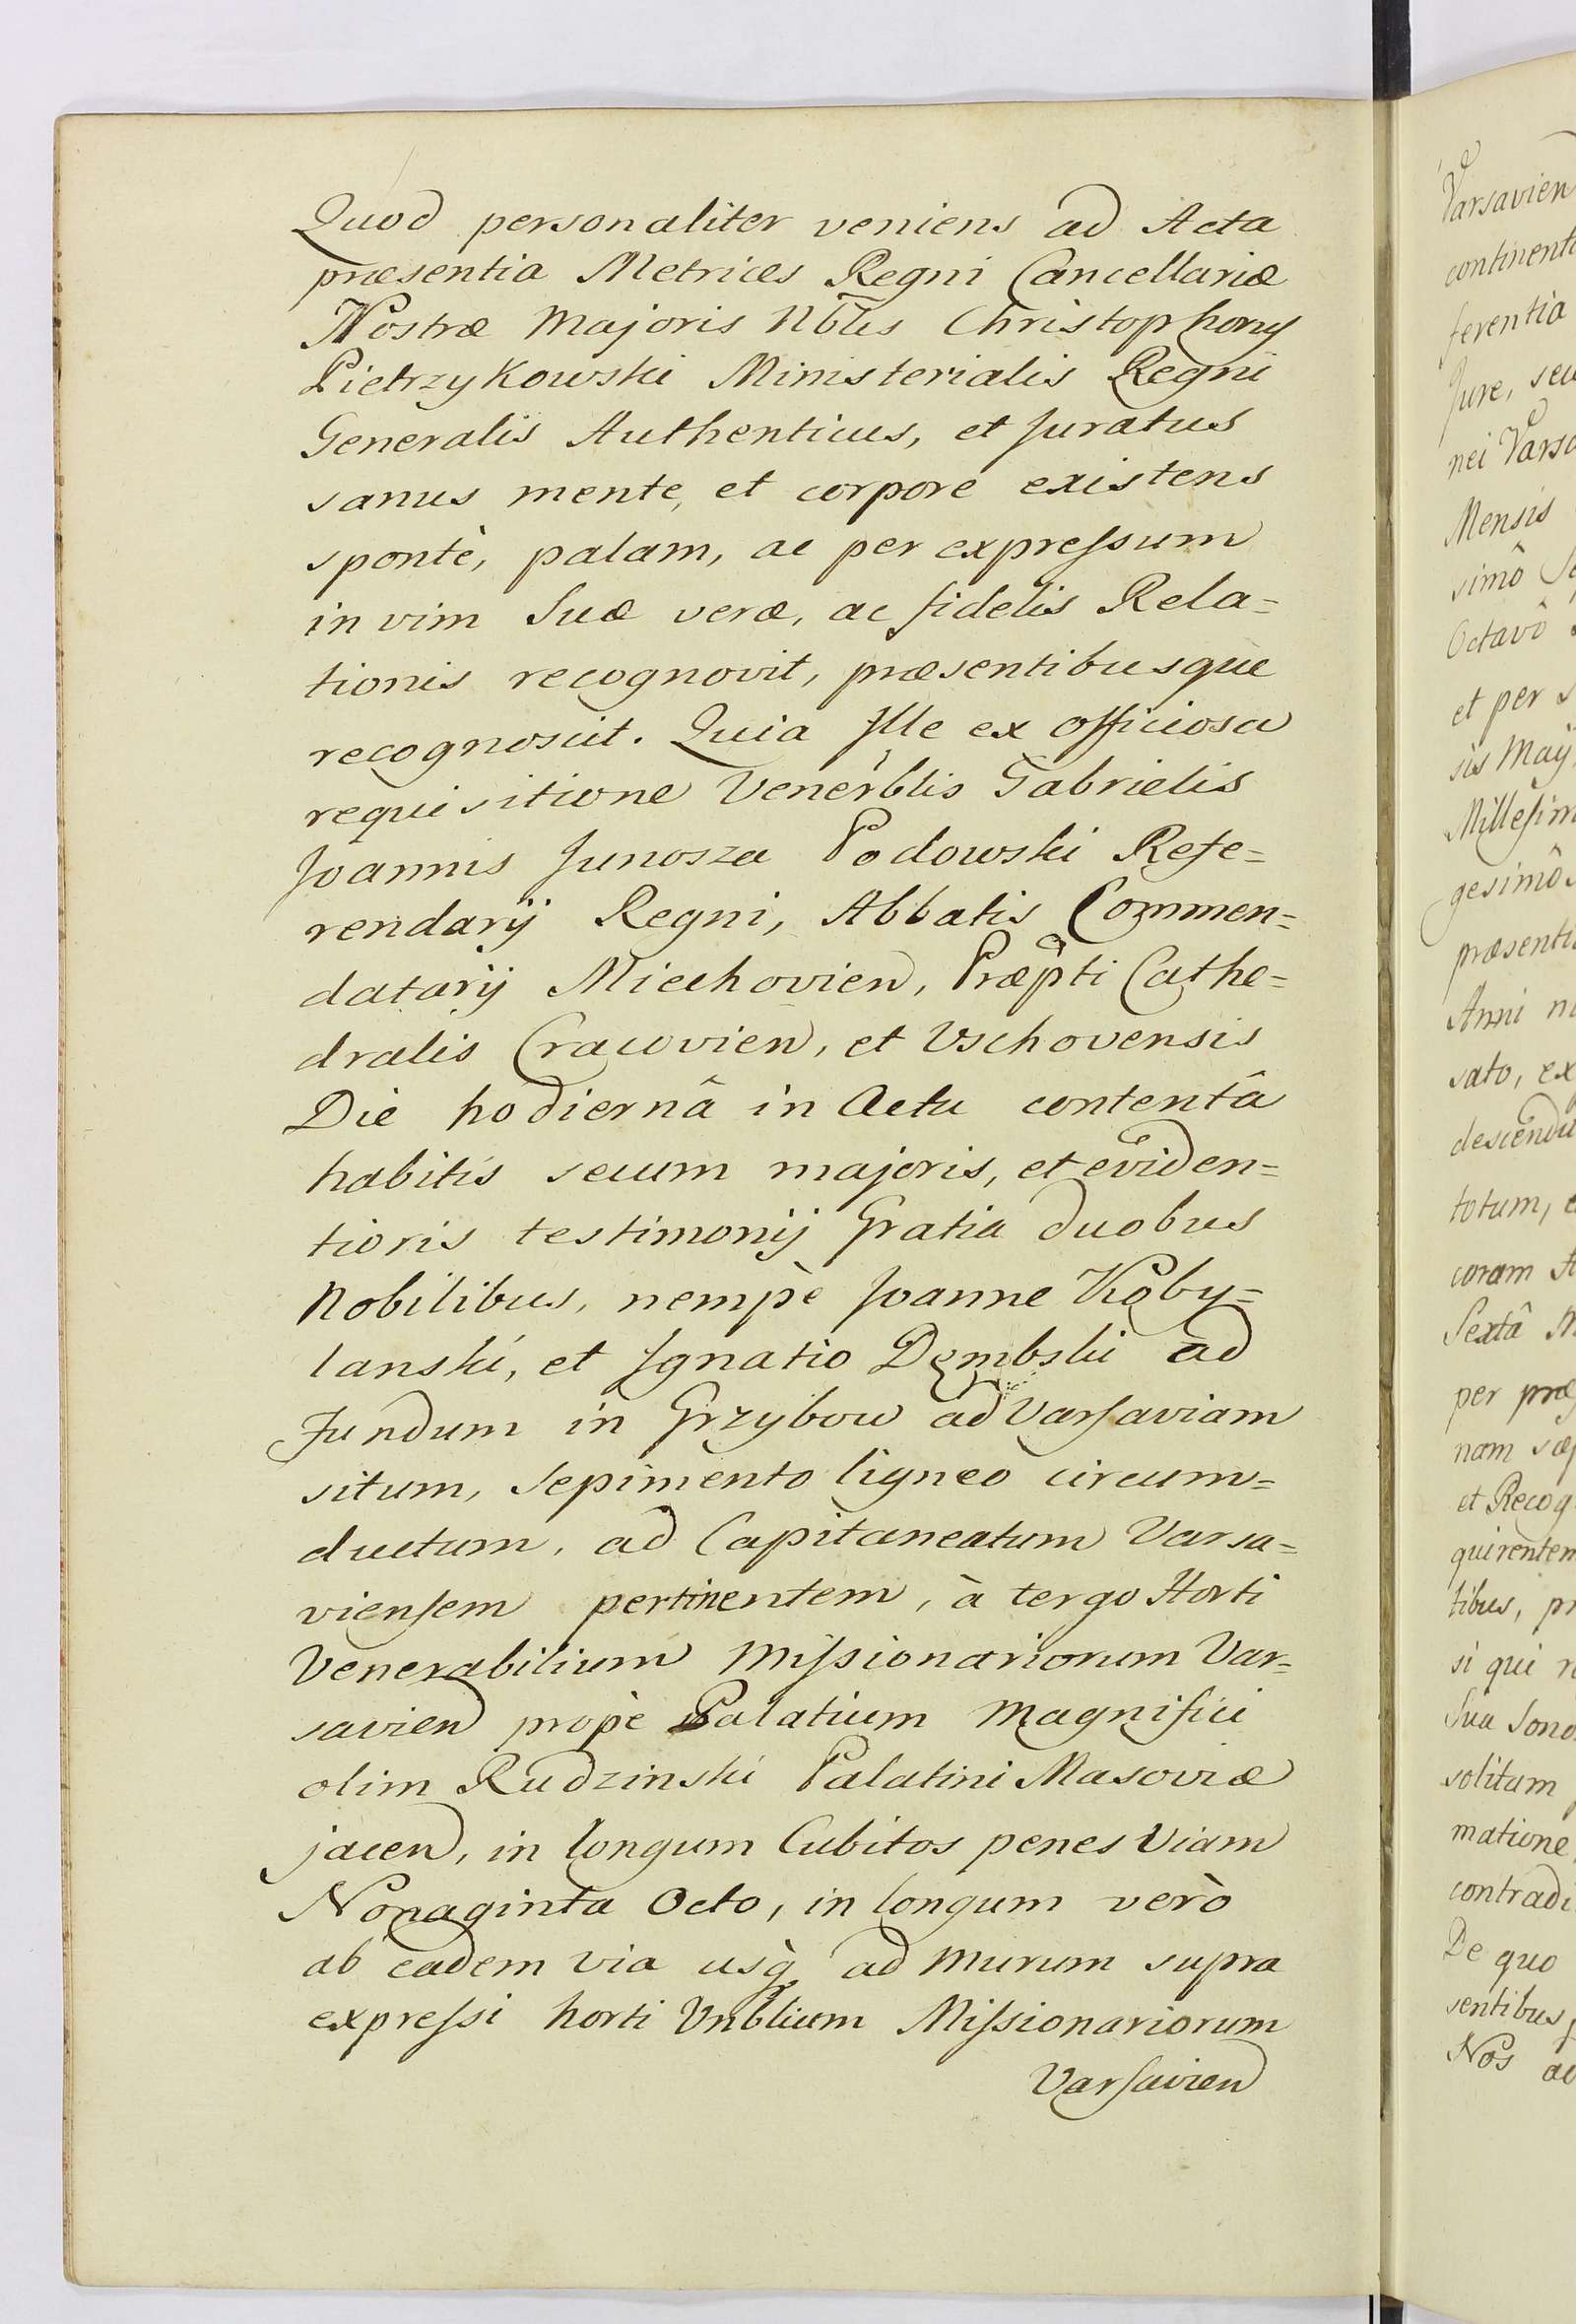 Quod personaliter veniens ad Acta
præsentia Metrices Regni Cancellariæ
Nostræ Majoris Nbłis Christophorus
Pietrzykowski Ministerialis Regni
Generalis Authenticus, et Juratus
sanus mente, et corpore existens
spontè, palam, ac per expreſsum
in vim Suæ veræ, ac fidelis Rela=
tionis recognovit, præsentibusque
recognoscit. Quia Ille ex officiosa
requisitione Venerblis Gabrielis
Joannis Junosza Podowski Refe=
rendarÿ Regni, Abbatis Commen=
datarÿ Miechovien, Præpti Cathe=
dralis Cracovien, et Vschovensis
Die hodiernâ in Actu contentâ
habitis secum majoris, et eviden=
tioris testimonÿ Gratia duobus
Nobilibus, nempè Joanne Koby=
lanski, et Ignatio Dembski ad
Fundum in Grzybow ad Varſaviam
situm, Sepimento ligneo circum=
ductum, ad Capitaneatum Varsa=
vienſem pertinentem, à tergo Horti
Venerabilium Miſsionariorum Var=
savien propè Palatium Magnifici
olim Rudzinski Palatini Masoviæ
jacen, in longum Cubitos penes Viam
Nonaginta Octo, in longum verò
ab eadem via usq̀ ad Murum supra
expreſsi horti Vnblium Miſsionariorum
Varſavien
Varsavien
continent
ferentia
Jure, seu
nei Varsa
Mensis
simô
Octavô
et per
sis Maÿ
Milleſim
gesimô
præsenti
Anni
sato, ex
descendu
totum,
coram
Sextâ
per præ
nam
et Recog
quirentem
tibus,
si qui
Sua Sono
solitam
matione
contradi
De quo
sentibus
Nos